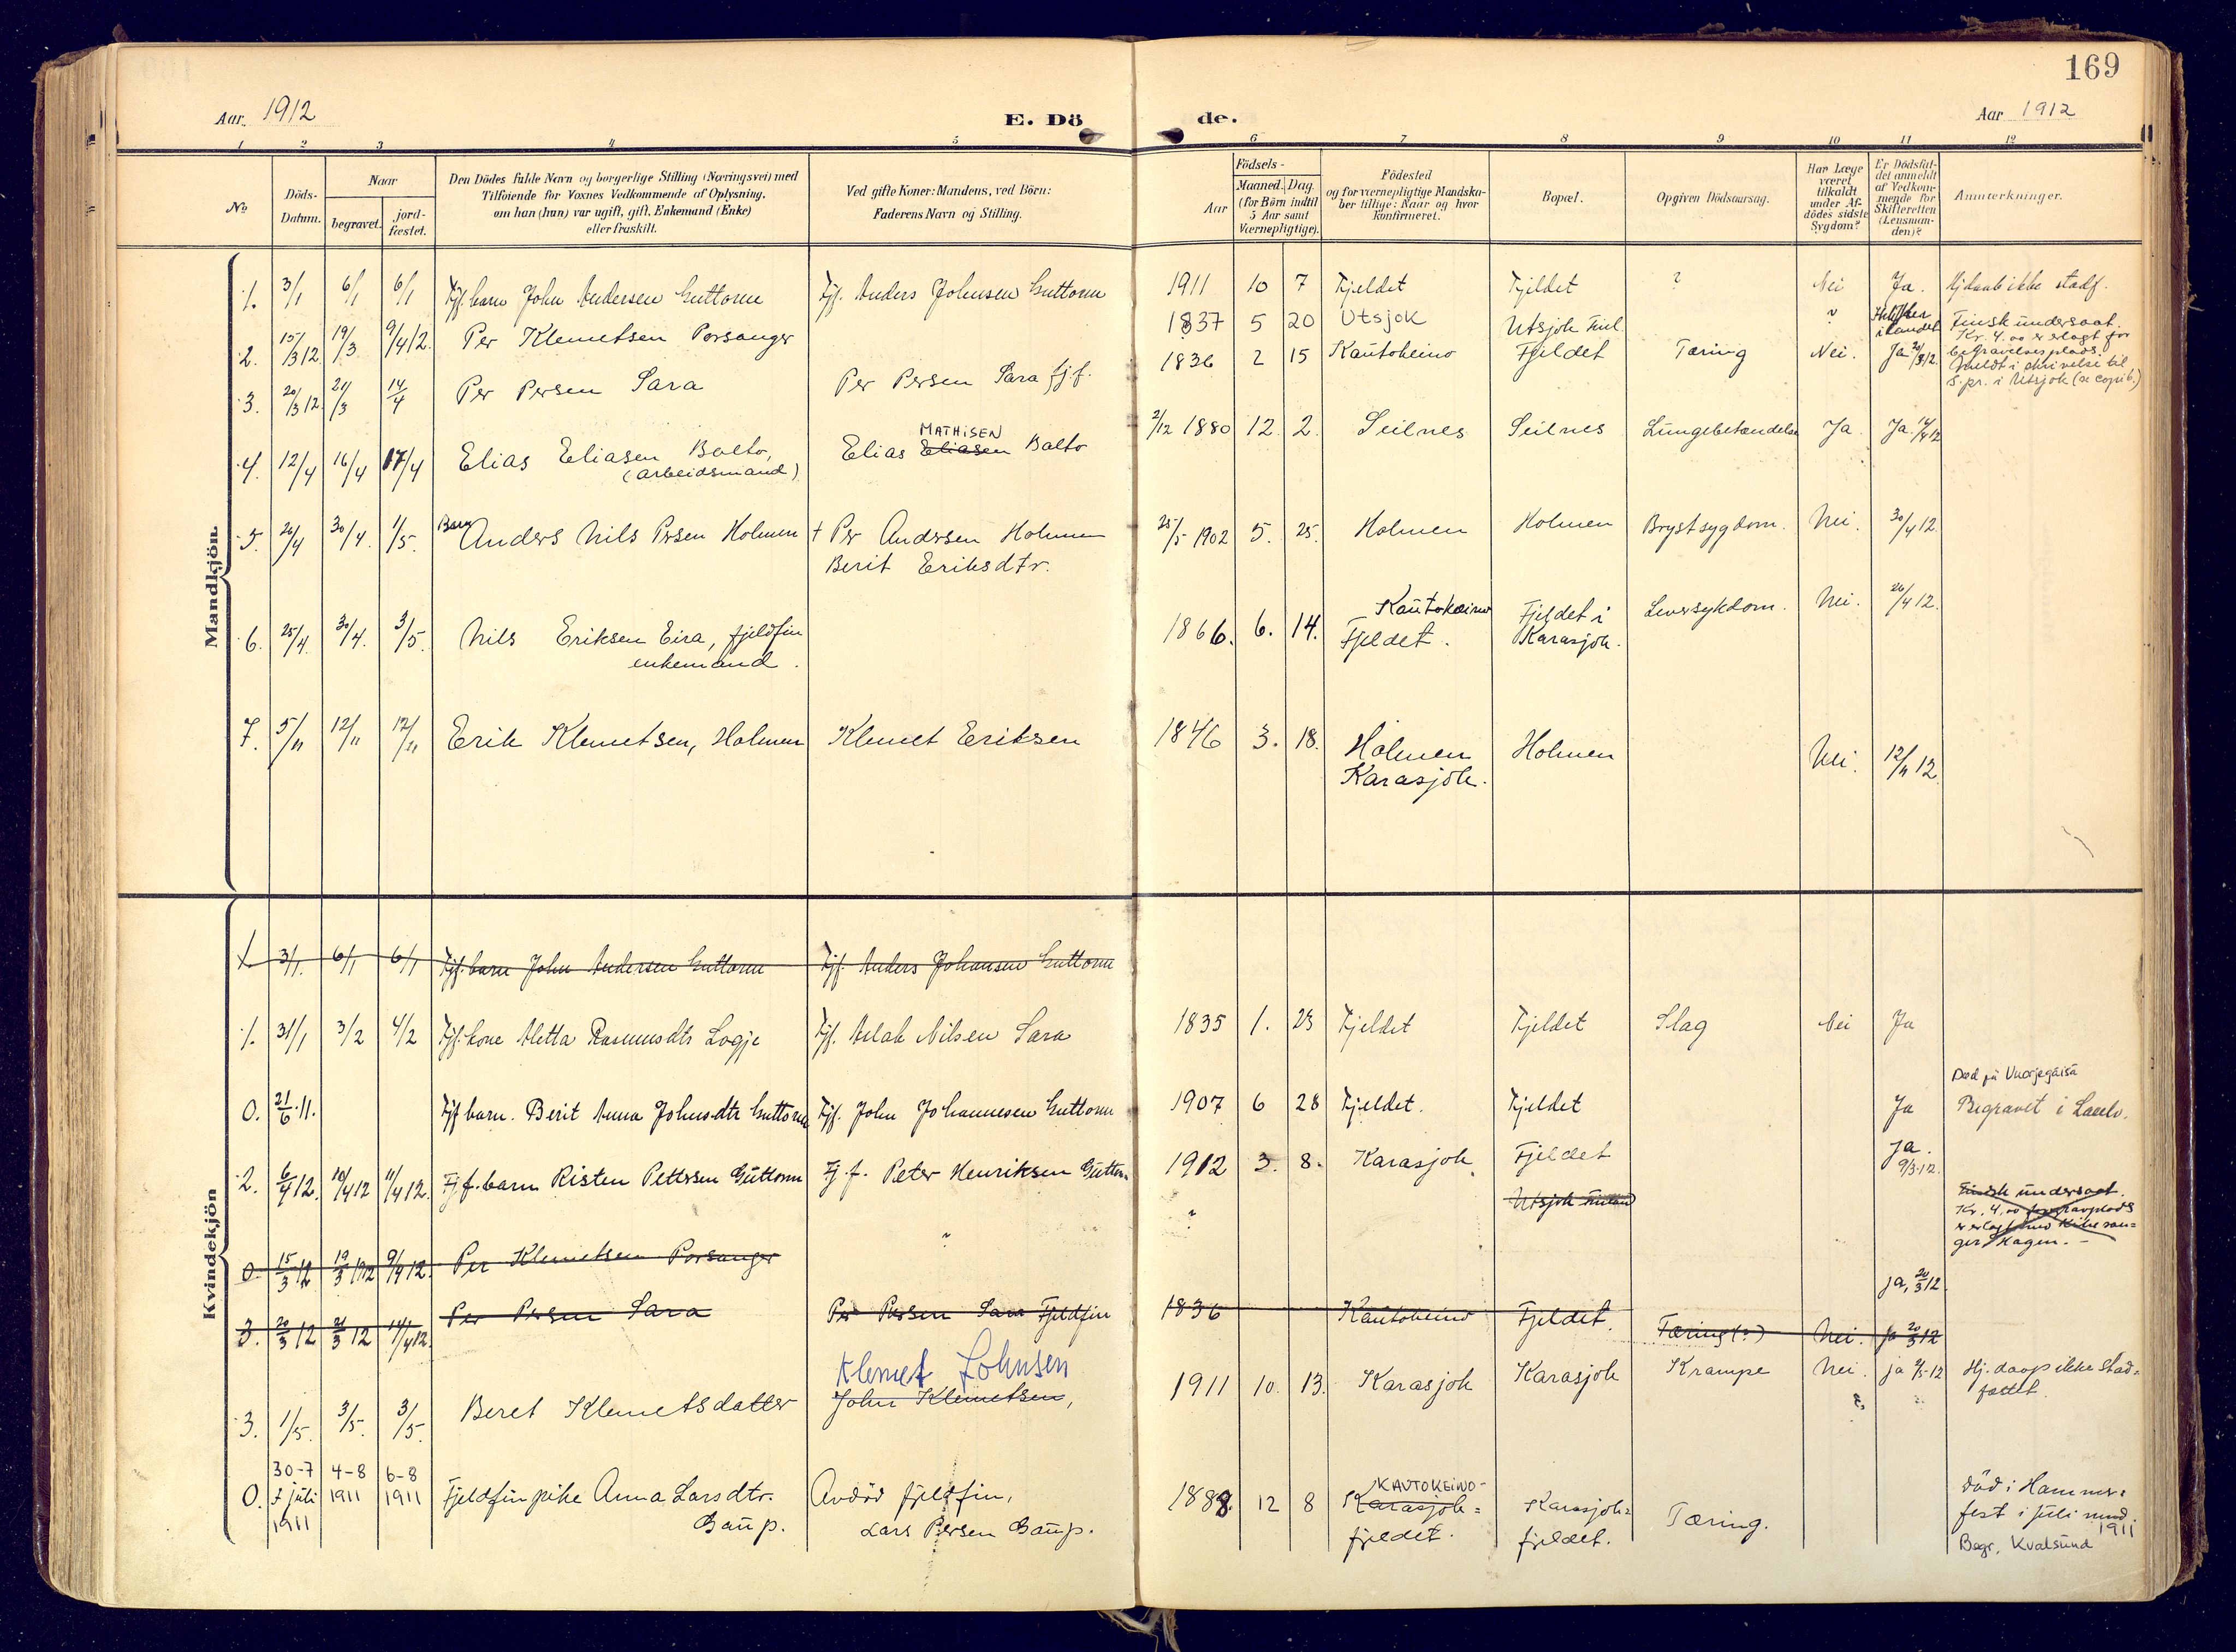 169
Aar 1912
E. Dö
de.
Aar 1912
1 2 3 4 5 6 7 8 9 10 11 12
No
Döds-Datum.
Naar
begravet.
jord-fæstet.
Den Dödes fulde Navn og borgerlige Stilling (Næringsvei) med
Tilföiende for Voxnes Vedkommende af Oplysning.
om han (hun) var ugift, gift, Enkemand (Enke)
eller fraskilt.
Ved gifte Koner: Mandens, ved Börn:
Faderens Navn og Stilling.
Födsels-
Aar
Maaned. Dag.
(for Börn indtil
5 Aar samt
Værnepligtige).
Födested
og for værnepligtige Mandska-
ber tillige: Naar og hvor
Konfirmeret.
Bopæl.
Opgiven Dödsaarsag.
Har Læge
været
tilkaldt
under Af-
dödes sidste
Sygdom?
Er Dödsfal-
det anmeldt
af Vedkom-
mende for
Skifteretten
(Lensman-
den)?
Anmærkninger.
Mandkjön.
1. 3/1 6/1 6/1 Fjf. barn John Andersen Guttorm Fjf. Anders Johnsen Guttorm 1911 10 7 Fjeldet Fjeldet ? Nei Ja. Hjdaab ikke stadf.
2. 15/3 12 19/3 9/4 12. Per Klemetsen Porsanger 1837 5 20 Utsjok Utsjok Finl. ? i landet Finsk undersaat.
Kr. 4.00 er erlagt for
begravelsesplads.
Meldt i skrivelse til
S.pr. i Utsjok (se copib.)
3. 20/3 12. 21/3 14/4 Per Persen Sara Per Persen Sara fjf. 1836 2 15 Kautokeino Fjeldet Tæring Nei. Ja 20/3 12.
4. 12/4 16/4 17/4 Elias Eliasen Balto,
(arbeidsmand)
MATHISEN
Elias Eliasen Balto 2/12 1880 12. 2. Seilnes Seilnes Lungebetændelse Ja Ja. 14/4 12
5. 26/4 30/4. 1/5. Barn Anders Nils Persen Holmen † Per Andersen Holmen
Berit Eriksdtr.
25/5 1902 5. 25. Holmen Holmen Brystsygdom. Nei. 30/4 12.
6. 25/4. 30/4. 3/5. Nils Eriksen Eira, fjeldfin
enkemand.
1866. 6. 14. Kautokeino
Fjeldet.
Fjeldet i
Karasjok.
Leversykdom. Nei. 26/4 12.
7. 5/11 12/11 12/11 Erik Klemetsen, Holmen Klemet Eriksen 1846 3. 18. Holmen
Karasjok.
Holmen Nei. 12/11 12.
Kvindekjön
1. 3/1. 6/1 6/1 Fjf. barn John Andersen Guttorm Fjf. Anders Johansen Guttorm
1. 31/1 3/2 4/2 Fjf. kone Aletta Rasmusdtr Logje Fjf. Aslak Nilsen Sara 1835 1. 23 Fjeldet Fjeldet Slag Nei Ja
0. 21/6.11. Fjf barn. Berit Anna Johnsdtr Guttorm Fjf. John Johannesen Guttorm 1907 6 28 Fjeldet. Fjeldet Ja Død på Vuorjegaisa
Begravet i Laxelv.
2. 6/4 12. 10/4 12 11/4 12. Fjf. barn Risten Pettersen Guttorm Fj.f. Peter Henriksen Guttorm 1912 3. 8. Karasjok Fjeldet Ja.
9/3.12.
0. 15/3 12 19/3 1912 9/4 12. Per Klemetsen Porsanger " ? Utsjok Finland
Finsk undersaat.
Kr. 4,00 for gravplads
er erlagt
ger Hagen. -
ja, 20/3 12.
3. 20/3 12 21/3 12 14/4 12. Per Persen Sara Per Persen Sara Fjeldfin 1836 Kautokeino Fjeldet. Tæring (?) Nei. ja 20/3 12
Klemet Johnsen
3. 1/5. 3/5. 3/5. Beret Klemetsdatter John Klemetsen, 1911 10. 13. Karasjok Karasjok Krampe Nei. ja 2/5-12 Hj. daap ikke stad=
fæstet.
0. 30-7
7 juli
1911
4-8
1911
6-8
1911
Fjeldfinpike Anna Larsdtr.
Gaup.
Avdöd fjeldfin,
Lars Persen Gaup.
1888. 12 8 KAUTOKEINO-
Karasjok=
fjeldet.
Karasjok=
fjeldet.
Tæring.
död i Hammer=
fest i juli mnd.
1911
Begr. Kvalsund